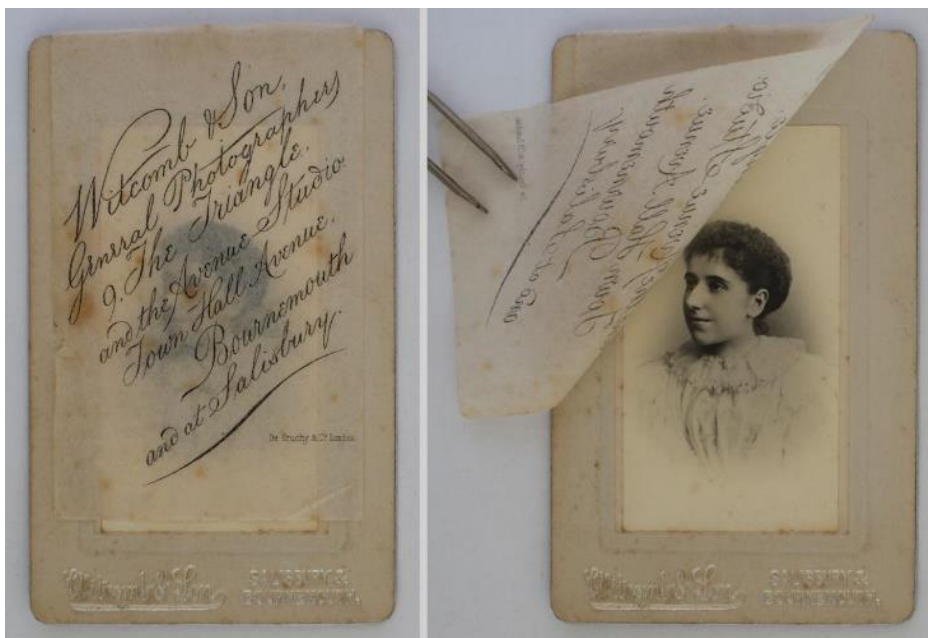 Witcomb & Son,
General Photographers
9, The Triangle.
and the Avenue Studio
Town Hall Avenue.
Bournemouth
and at Salisbury.
De Gruchy & Co London
Witcomb & Son
SALISBURY &
BOURNEMOUTH.
Witcomb & Son
SALISBURY &
BOURNEMOUTH.